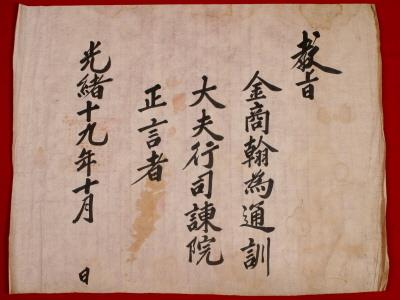 教旨
金商翰為通訓
大夫行司諫院
正言者
光緒十九年十月　日